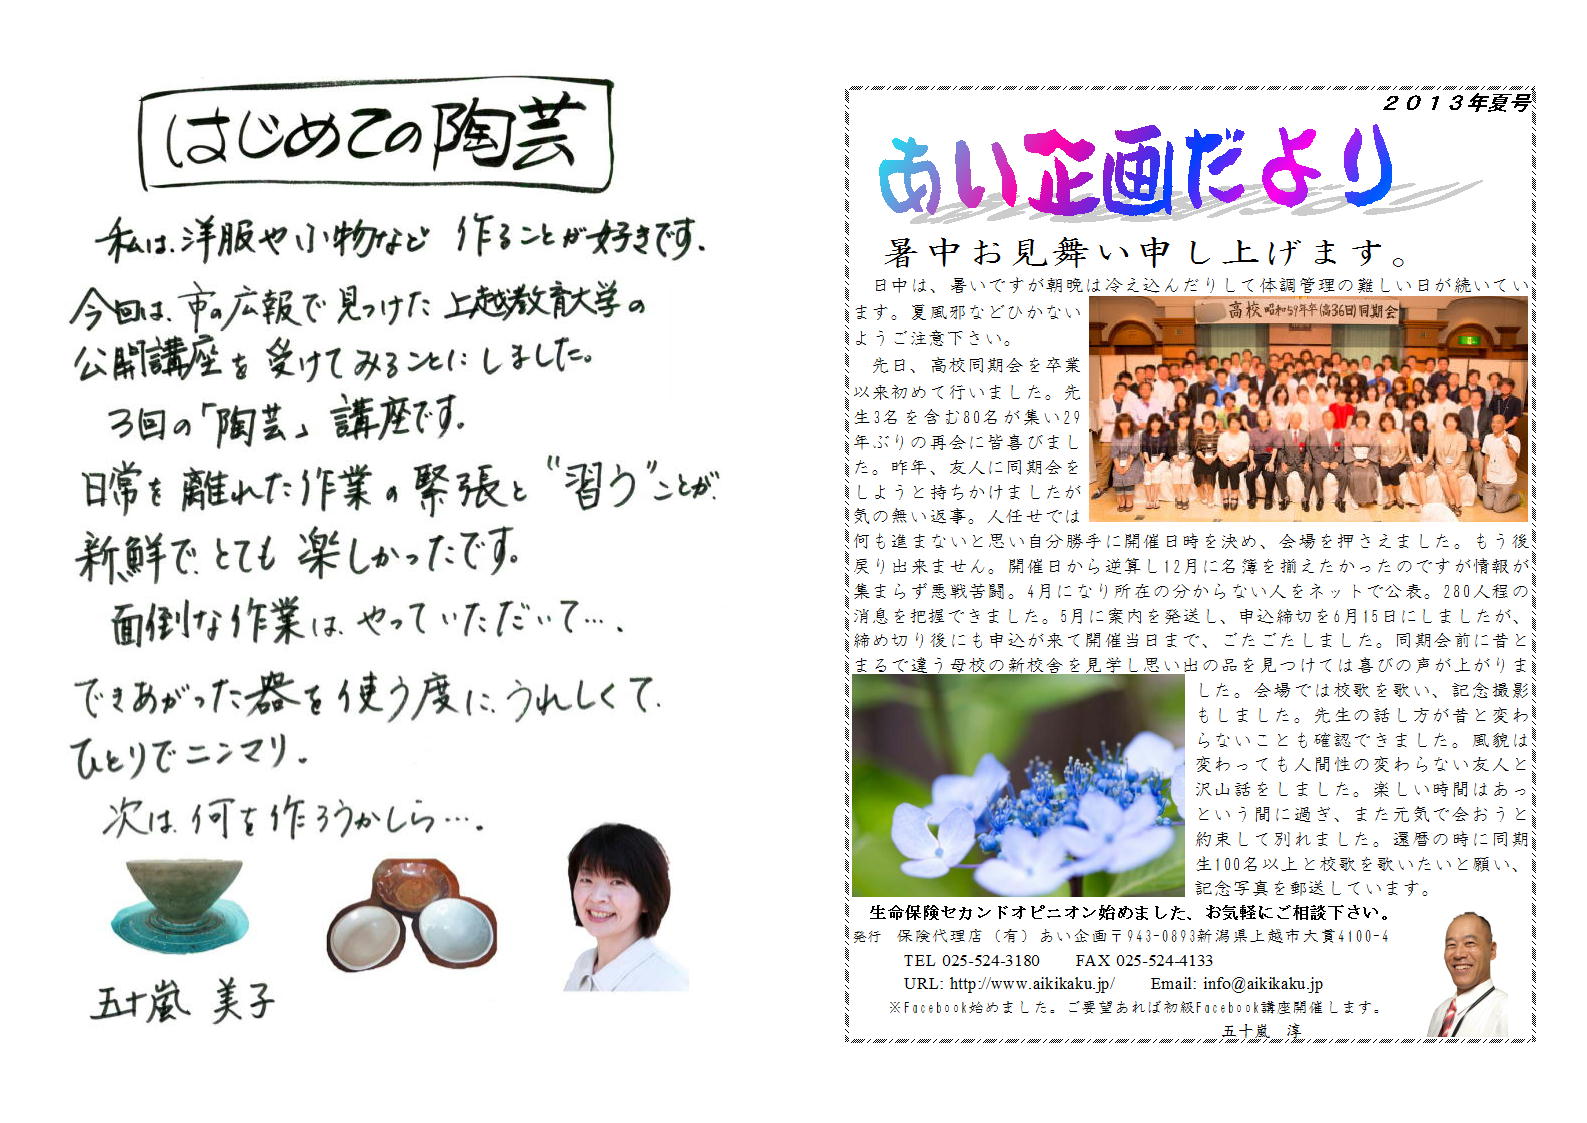 はじめての陶芸
私は、洋服や小物など 作ることが好きです。
今回は、市の広報で見つけた上越教育大学の
公開講座を受けてみることにしました。
3回の「陶芸」講座です。
日常を離れた作業の緊張と“習う”ことが、
新鮮で、とても楽しかったです。
面倒な作業は、やっていただいて…、
できあがった器を使う度に、うれしくて、
ひとりでニンマリ。
次は、何を作ろうかしら…。
五十嵐 美子
2013年夏号
あい企画だより
暑中お見舞い申し上げます。
日中は、暑いですが朝晩は冷え込んだりして体調管理の難しい日が続いてい
ます。夏風邪などひかない
ようご注意下さい。
先日、高校同期会を卒業
以来初めて行いました。先
生3名を含む80名が集い29
年ぶりの再会に皆喜びまし
た。昨年、友人に同期会を
しようと持ちかけましたが
気の無い返事。人任せでは
高校 昭和59年卒(高36回)同期会
何も進まないと思い自分勝手に開催日時を決め、会場を押さえました。もう後
戻り出来ません。開催日から逆算し12月に名簿を揃えたかったのですが情報が
集まらず悪戦苦闘。4月になり所在の分からない人をネットで公表。280人程の
消息を把握できました。5月に案内を発送し、申込締切を6月15日にしましたが、
締め切り後にも申込が来て開催当日まで、ごたごたしました。同期会前に昔と
まるで違う母校の新校舎を見学し思い出の品を見つけては喜びの声が上がりま
した。会場では校歌を歌い、記念撮影
もしました。先生の話し方が昔と変わ
らないことも確認できました。風貌は
変わっても人間性の変わらない友人と
沢山話をしました。楽しい時間はあっ
という間に過ぎ、また元気で会おうと
約束して別れました。還暦の時に同期
生100名以上と校歌を歌いたいと願い、
記念写真を郵送しています。
生命保険セカンドオピニオン始めました、お気軽にご相談下さい。
発行 保険代理店（有）あい企画〒943-0893新潟県上越市大貫4100-4
TEL 025-524-3180 FAX 025-524-4133
URL: http://www.aikikaku.jp/ Email: info@aikikaku.jp
※Facebook始めました。ご要望あれば初級Facebook講座開催します。
五十嵐 淳